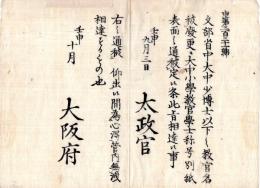 文部省中大中少博士以下ノ教官名
被廃更ニ大中小学教官学士称号別紙
表面之通被定候条此旨相達候事
壬申九月三日
太政官
右之通被仰出候間為心得管内無洩
相達するもの也
壬申十月
大阪府